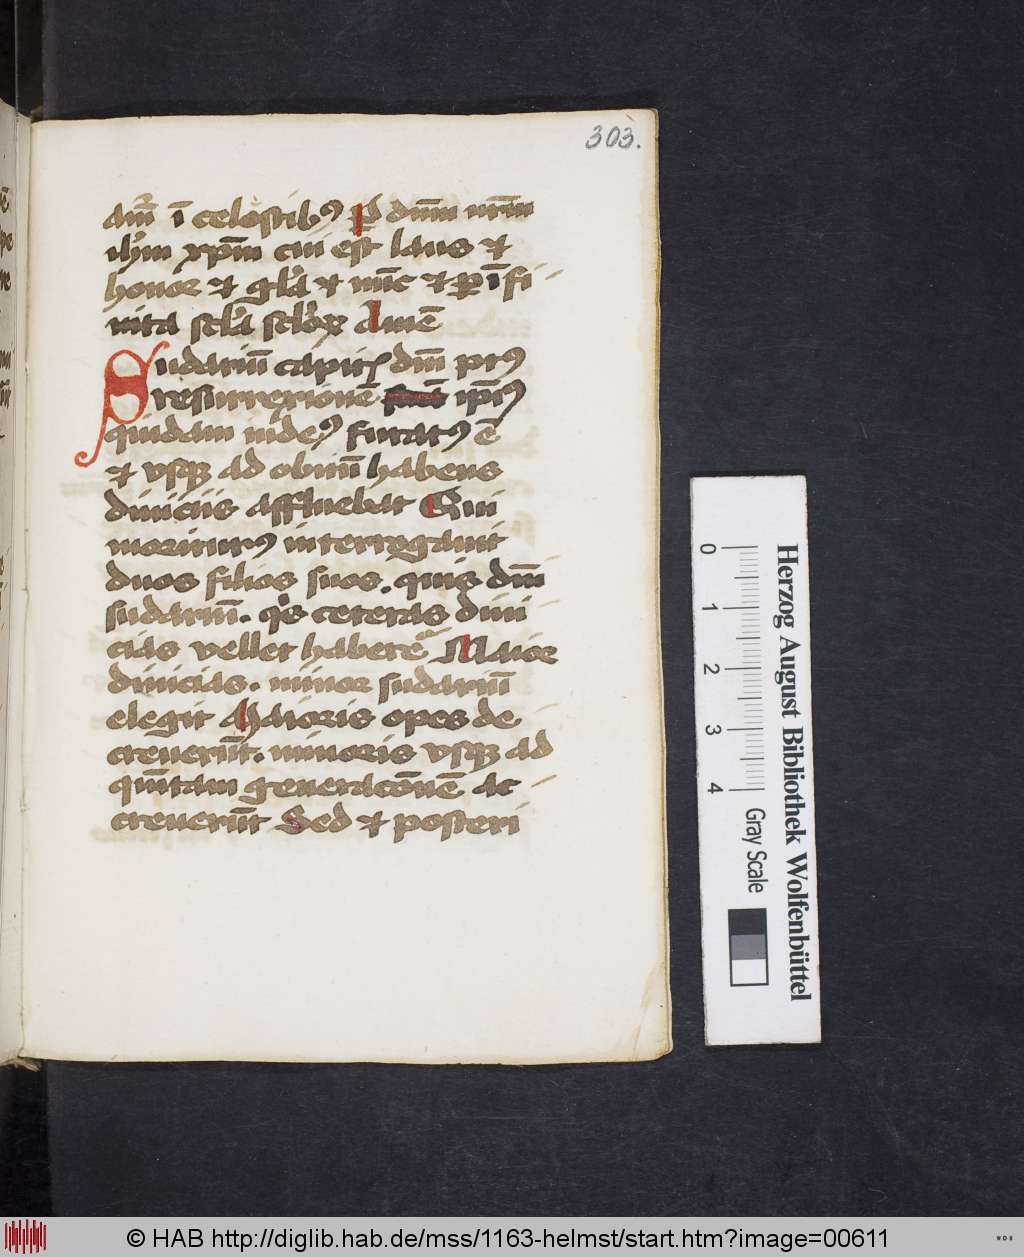 303.
am̄ ī celestibꝰ P dn̄m nr̄m
ih̄m xp̄m cui est laus et
honor et gl̄a et nūc et ꝑ īfi
nita sc̄la sc̄loꝝ amē
Sudariū capitꝭ dn̄i pꝰ
resurrexionē ip̄iꝰ
quidam iudeꝰ furatꝰ ē
et vsqꝫ ad obitū habens
diuiciis affluebat Qui
moriturꝰ interrogauit
duos filios suos. quis dn̄i
sudariū. qͥs ceteras diui
cias vellet habere Maior
diuicias. minor sudariū
elegit Maioris opes de
creuerūt. minoris vsqꝫ ad
quītam generacōnē ac
creuerūt Sed et posteri
0
1
2
3
4
Gray Scale
Herzog August Bibliothek Wolfenbüttel
© HAB http://diglib.hab.de/mss/1163-helmst/start.htm?image=00611